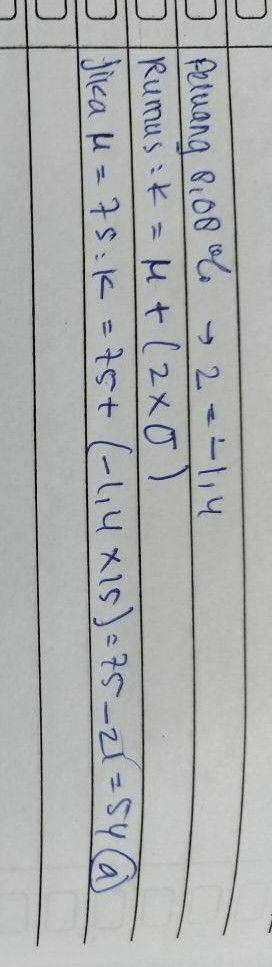 Peluang 8,08 % → Z = -1,4
Rumus : k = μ + (Z × σ)
Jika μ = 75 : k = 75 + (-1,4 × 15) = 75 - 21 = 54 (a)